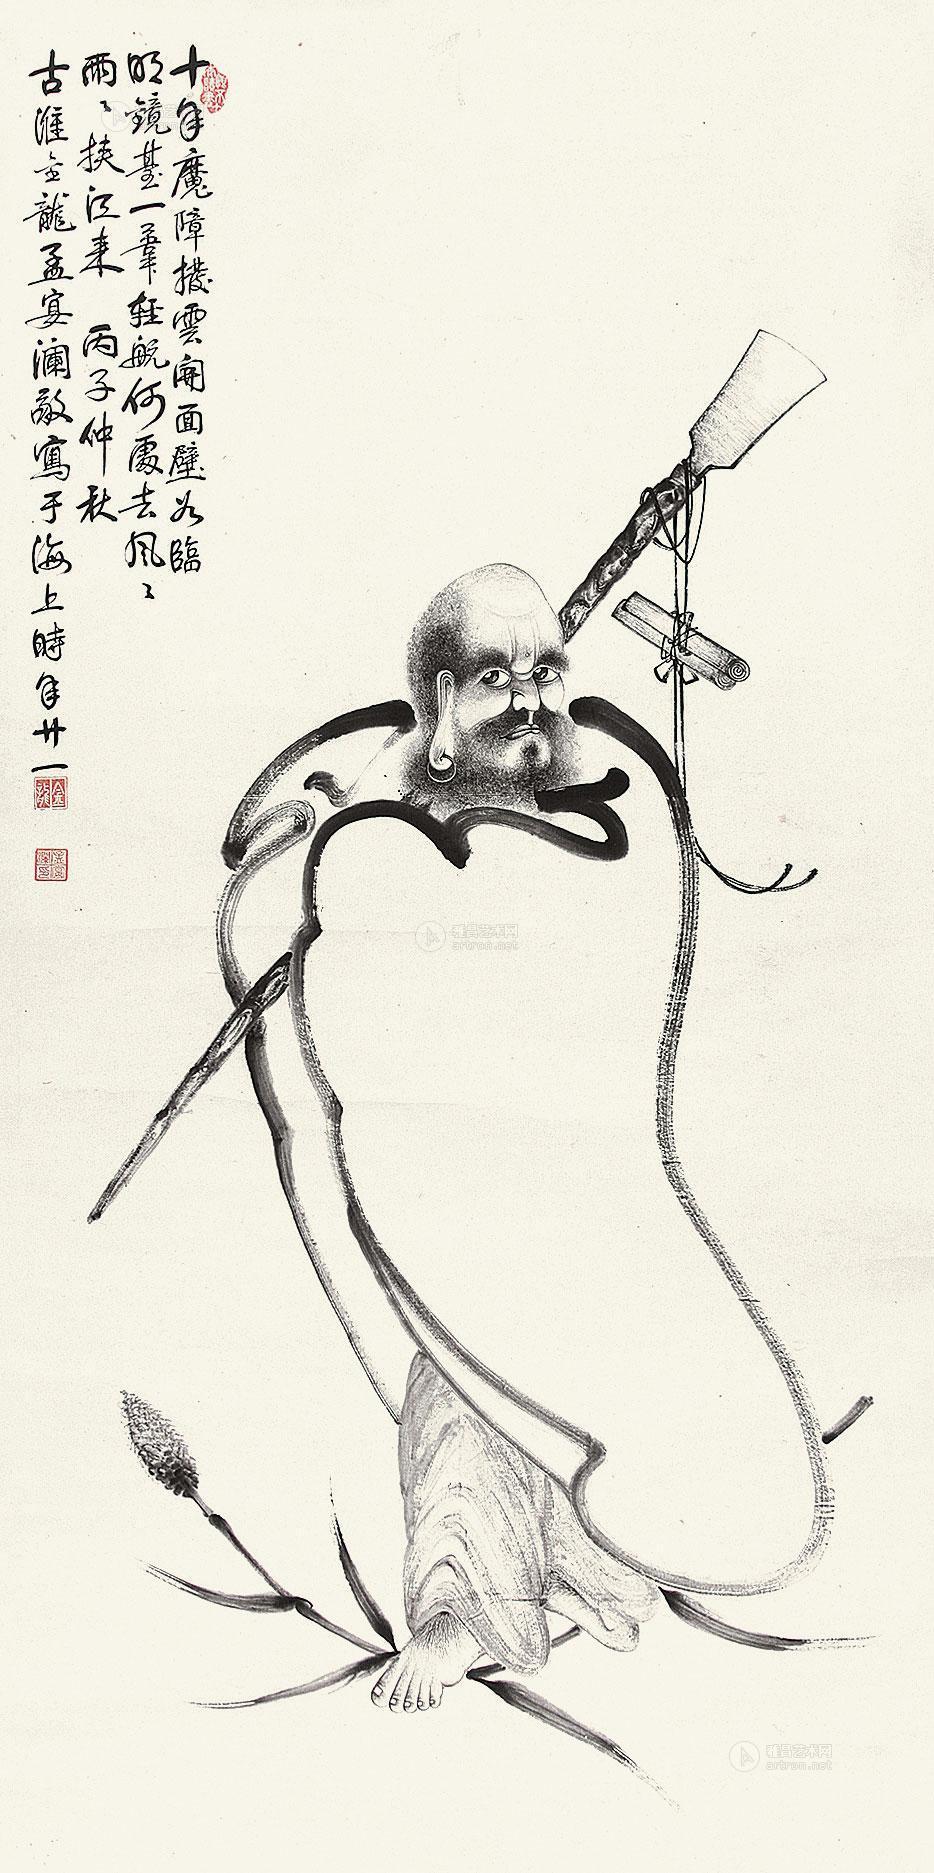 十年魔障撥雲開面壁如臨
明鏡臺一葦輕航何處去風〻
雨〻挾江來 丙子仲秋
古淮金龍孟宴瀾敬寫于海上時年廿一
雅昌艺术网
artron.net
雅昌艺术网
artron.net